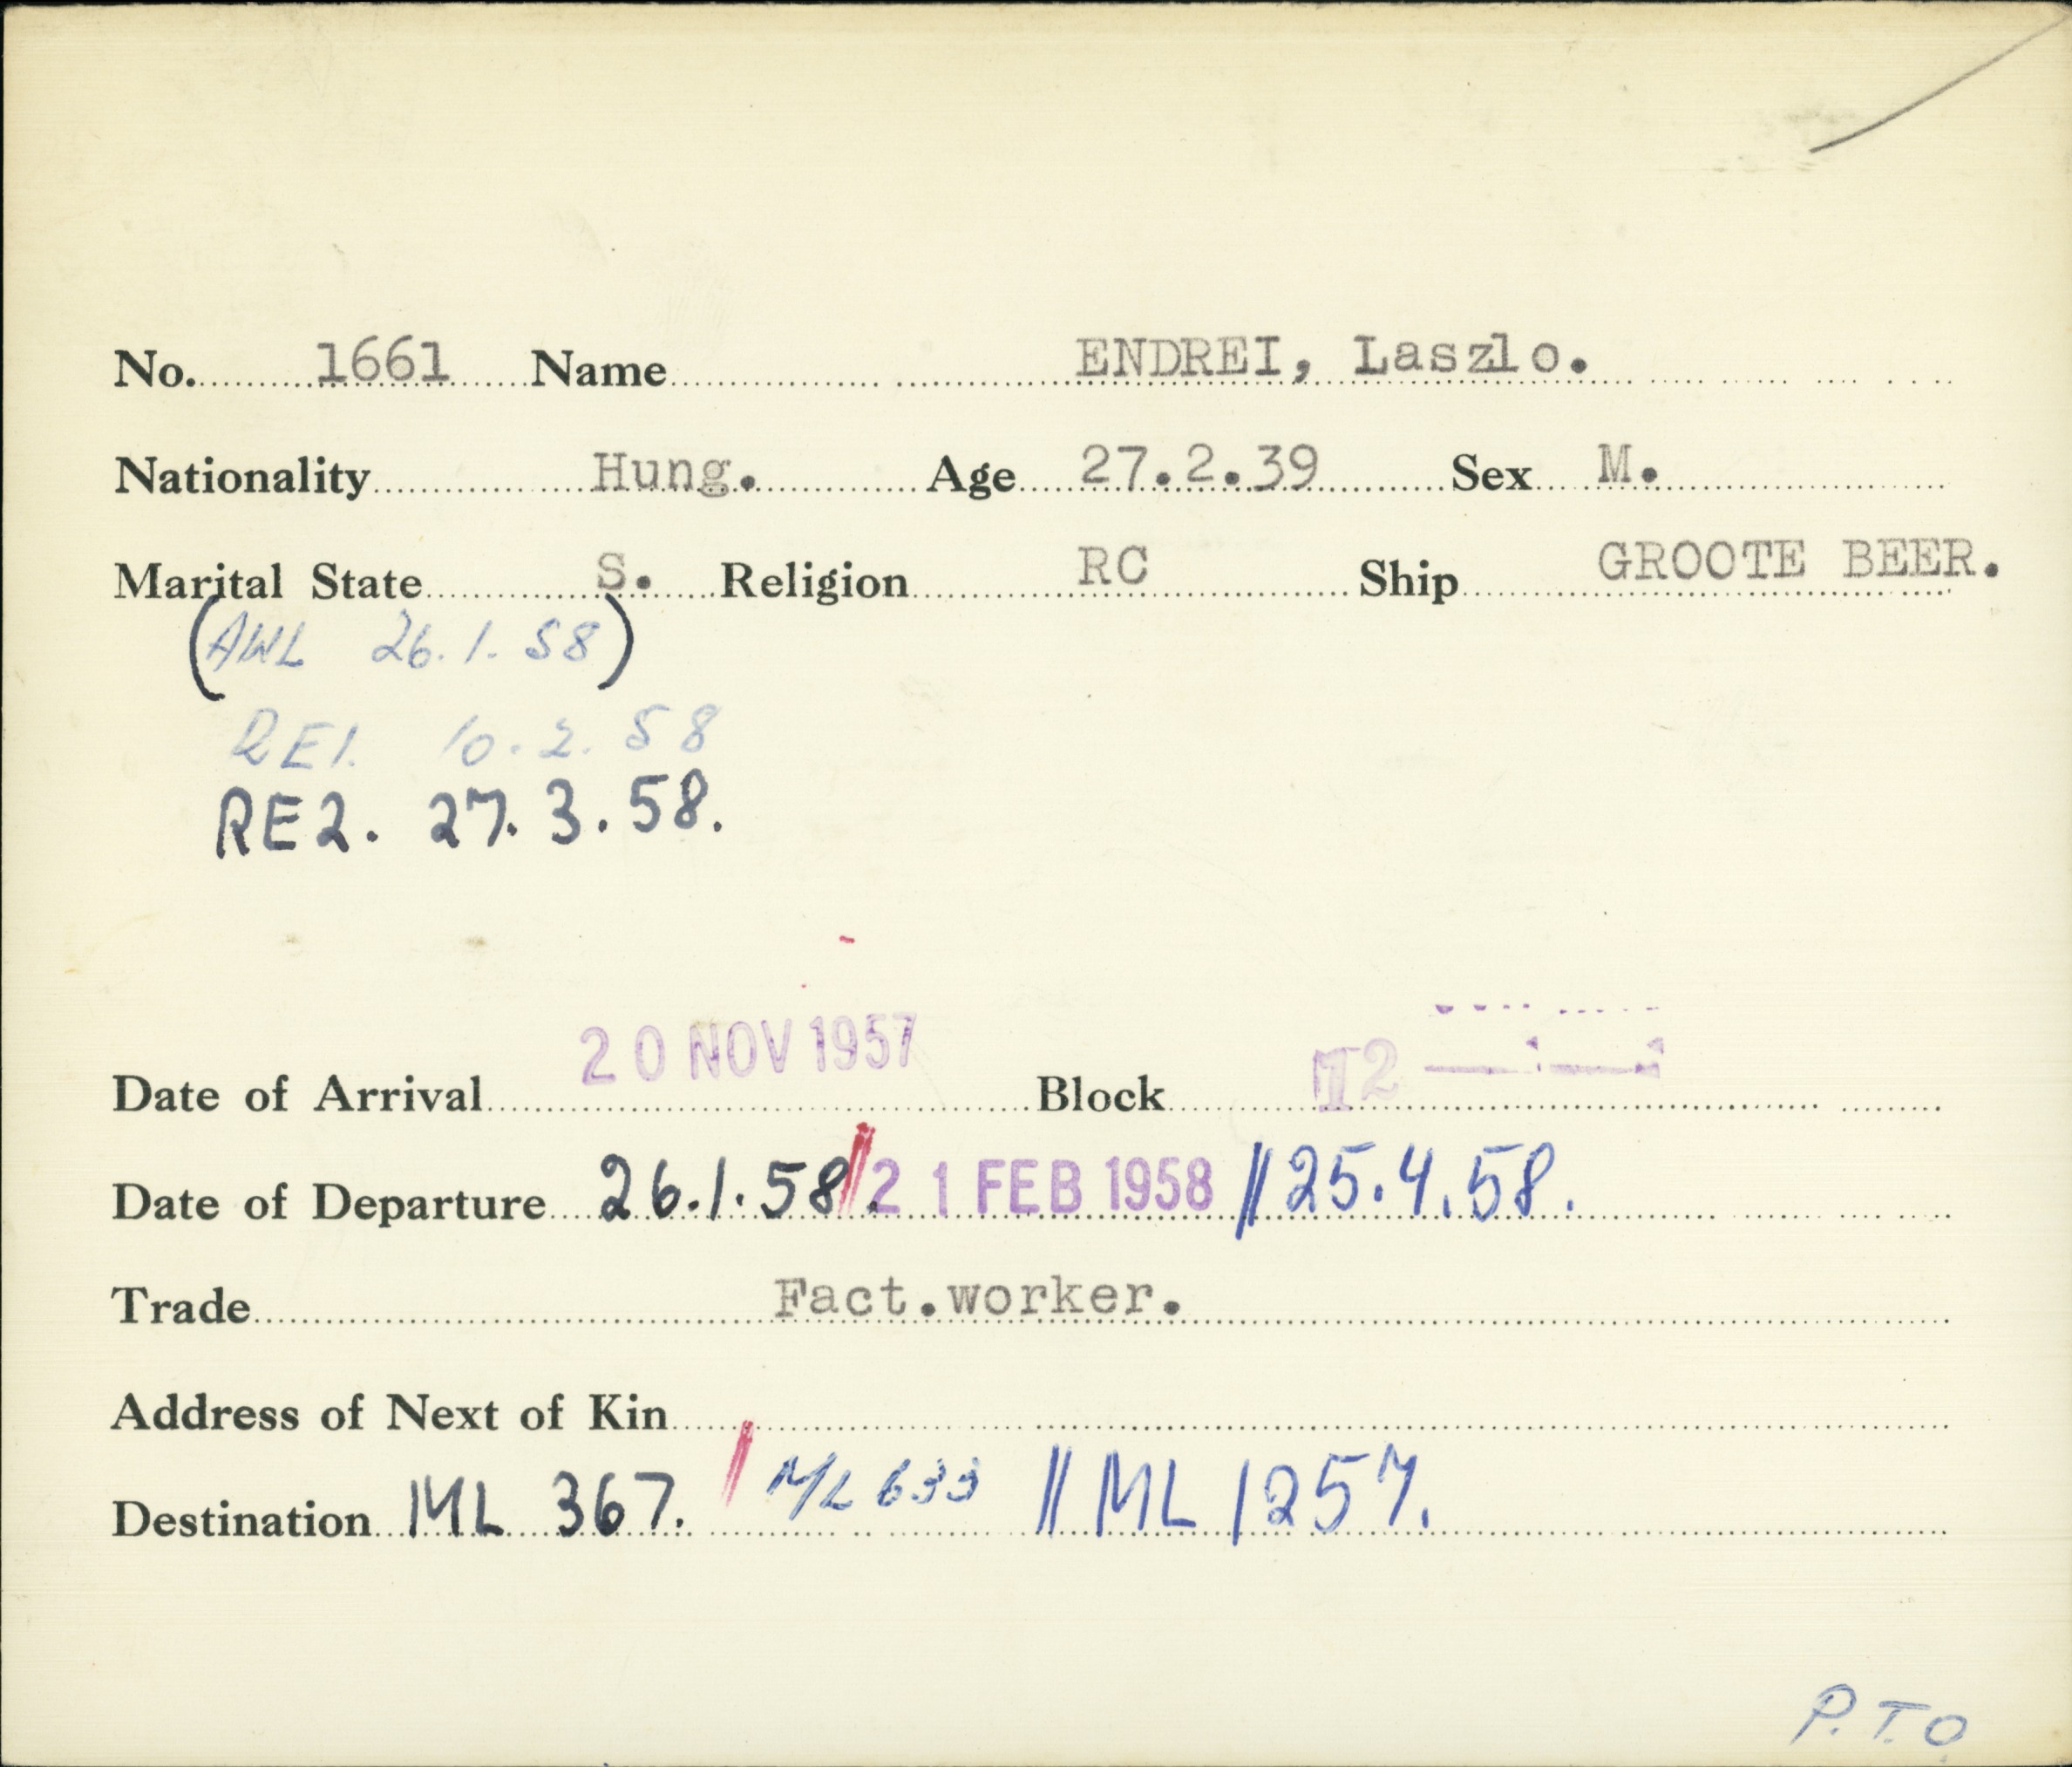 No. 1661 Name ENDREI, Laszlo.
Nationality Hung. Age 27.2.39 Sex M.
Marital State S. Religion RC Ship GROOTE BEER.
(AWL 26.1.58)
RE1. 10.2.58
RE2. 27.3.58.
Date of Arrival 20 NOV 1957 Block 12
Date of Departure 26.1.58 // 21 FEB 1958 // 25.4.58.
Trade Fact.worker.
Address of Next of Kin
Destination ML 367. // ML 633 // ML 1257.
P.T.O.